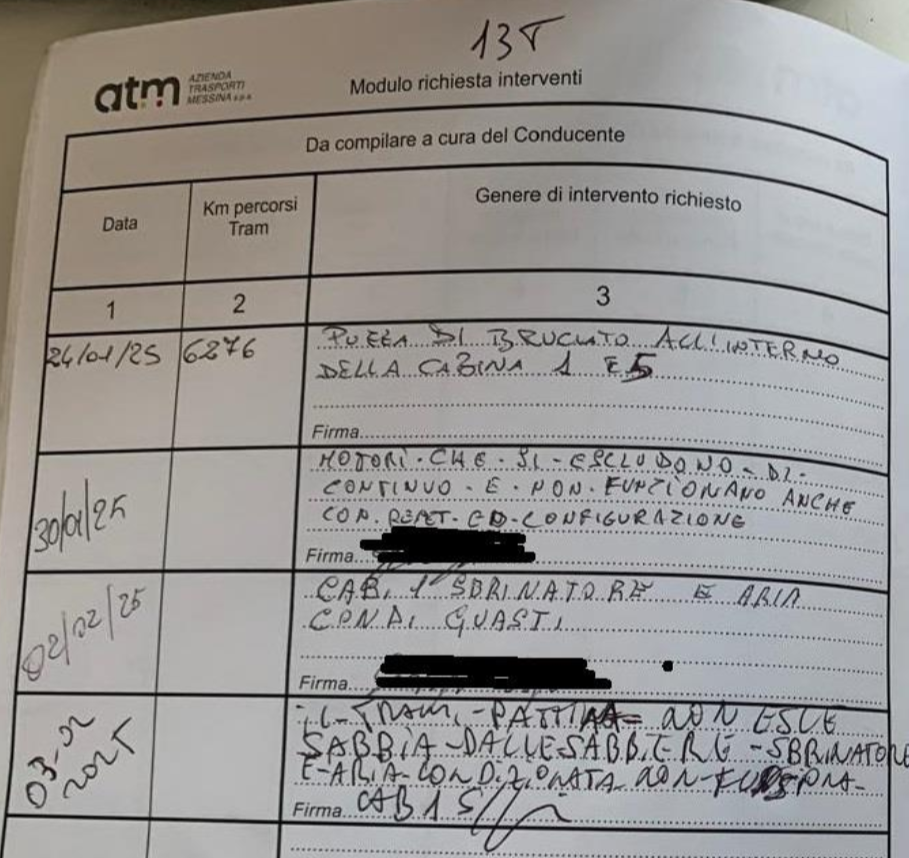 13T
atm AZIENDA
TRASPORTI
MESSINA s.p.a.
Modulo richiesta interventi
Da compilare a cura del Conducente
Data
Km percorsi
Tram
Genere di intervento richiesto
1
2
3
24/01/25
6276
PUZZA DI BRUCIATO ALL'INTERNO
DELLA CABINA 1 E 5
Firma
30/01/25
MOTORI CHE SI ESCLUDONO DI
CONTINUO E NON FUNZIONANO ANCHE
CON RESET ED CONFIGURAZIONE
Firma
02/02/25
CAB. 1 SBRINATORE E ARIA
COND. GUASTI
Firma
03-02
2025
IL TRAM PATTINA NON ESCE
SABBIA DALLE SABBIERE - SBRINATORE
E ARIA CONDIZIONATA NON FUNZIONA
Firma CAB 1 5